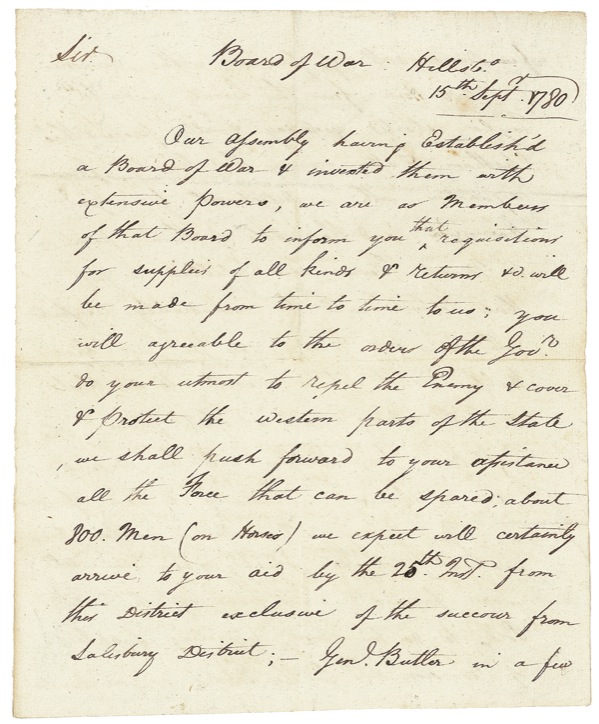 Sir Board of War Hillsbo
15th Septr 1780
Our Assembly having Establish'd
a Board of War & invested them with
extensive Powers, we are as Members
of that Board to inform you that requisitions
for supplies of all kinds & returns &c. will
be made from time to time to us; you
will agreeable to the orders of the Govr.
do your utmost to repel the Enemy & cover
& Protect the western parts of the State
, we shall push forward to your assistance
all the Force that can be spared; about
800. Men (on Horses) we expect will certainly
arrive to your aid by the 25th. Inst. from
this District exclusive of the succour from
Salisbury District; — Genl. Butler in a few